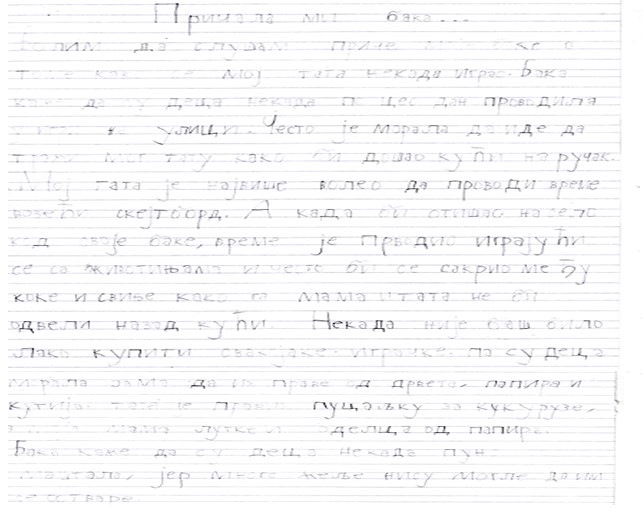 Причала ми бака...
Волим да слушам приче моје баке о
томе како се мој тата некада играо. Бака
каже да су деца некада по цео дан проводила
у игри на улици. Често је морала да иде да
тражи мог тату како би дошао кући на ручак.
Мој тата је највише волео да проводи време
возећи скејтборд. А када би отишао на село
код своје баке, време је прводио играјући
се са животињама и често би се сакрио међу
коке и свиње како га мама и тата не би
одвели назад кући. Некада није баш било
лако купити свакјаке играчке па су деца
морала сама да их праве од дрвета, папира и
кутија. Тата је правио пуцаљку за кукурузе,
мама лутке и оделца од папира.
Бака каже да су деца некада пуно
маштала, јер многе жеље нису могле да им
се остваре.